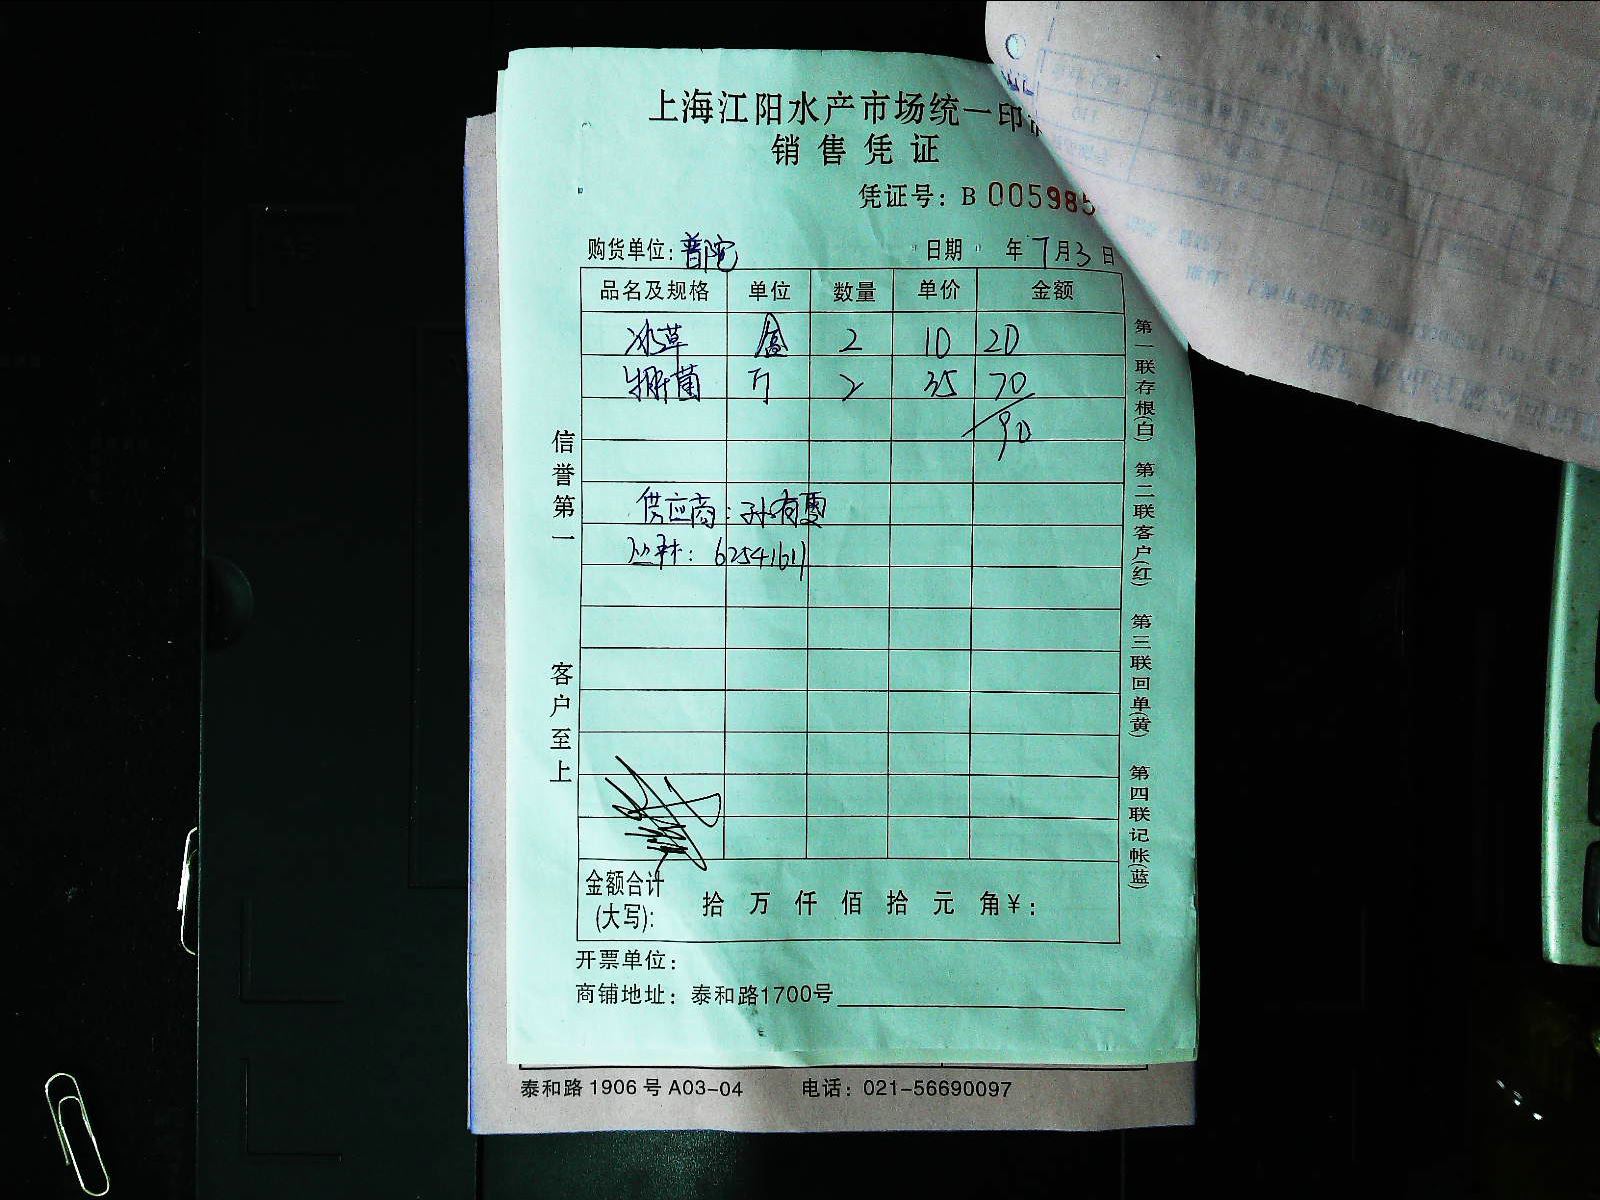 上海江阳水产市场统一印
销售凭证
凭证号: B 005985
购货单位: 普陀 日期 年 7月3日
品名及规格 单位 数量 单价 金额
冰草 盒 2 10 20
牛肝菌 斤 2 35 70
90
供应商: 孙有
62541611
信誉第一
客户至上
第一联存根(白) 第二联客户(红) 第三联回单(黄) 第四联记帐(蓝)
金额合计(大写): 拾 万 仟 佰 拾 元 角 ¥:
开票单位:
商铺地址: 泰和路1700号
泰和路 1906 号 A03-04 电话: 021-56690097